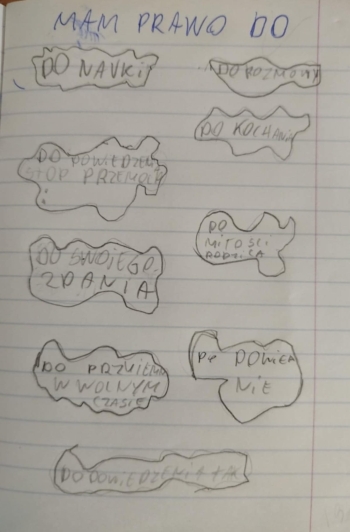 MAM PRAWO DO
DO NAUKI
DO ROZMOWY
DO KOCHANIA
DO POWIEDZENI
STOP PRZEMOCY
!
DO
MIŁOŚCI
RODZICA
DO SWOJEGO
ZDANIA
DO PRZYJEMN
W WOLNYM
CZASIE
DO POWIEDZ
NIE
DO POWIEDZENIA TAK